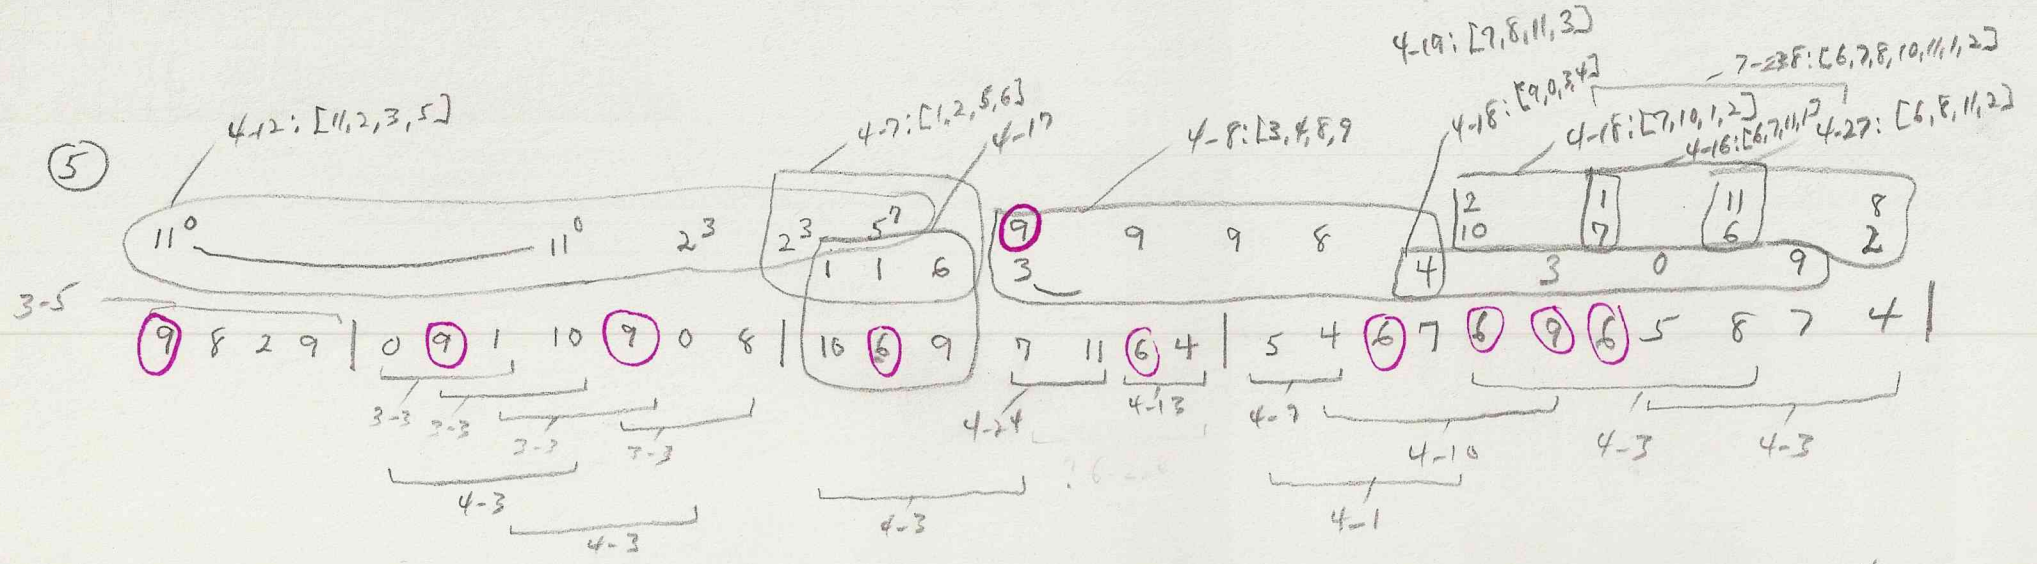 4-19: [7,8,11,3]
7-z38: [6,7,8,10,11,1,2]
4-12: [11,2,3,5] 4-7: [1,2,5,6] 4-17 4-8: [3,4,8,9 4-18: [9,0,3,4] 4-18: [7,10,1,2] 4-16: [6,7,11,1] 4-27: [6,8,11,2]
5
11⁰ 11⁰ 2³ 2³ 5⁷ 9 9 9 8 2 1 11 8
10 7 6 2
1 1 6 3 4 3 0 9
3-5
9 8 2 9 | 0 9 1 10 9 0 8 | 10 6 9 7 11 6 4 | 5 4 6 7 6 9 6 5 8 7 4 |
3-3 3-3 3-3 3-3 4-24 4-13 4-9 4-10 4-3 4-3
4-3 4-3 4-3 4-1